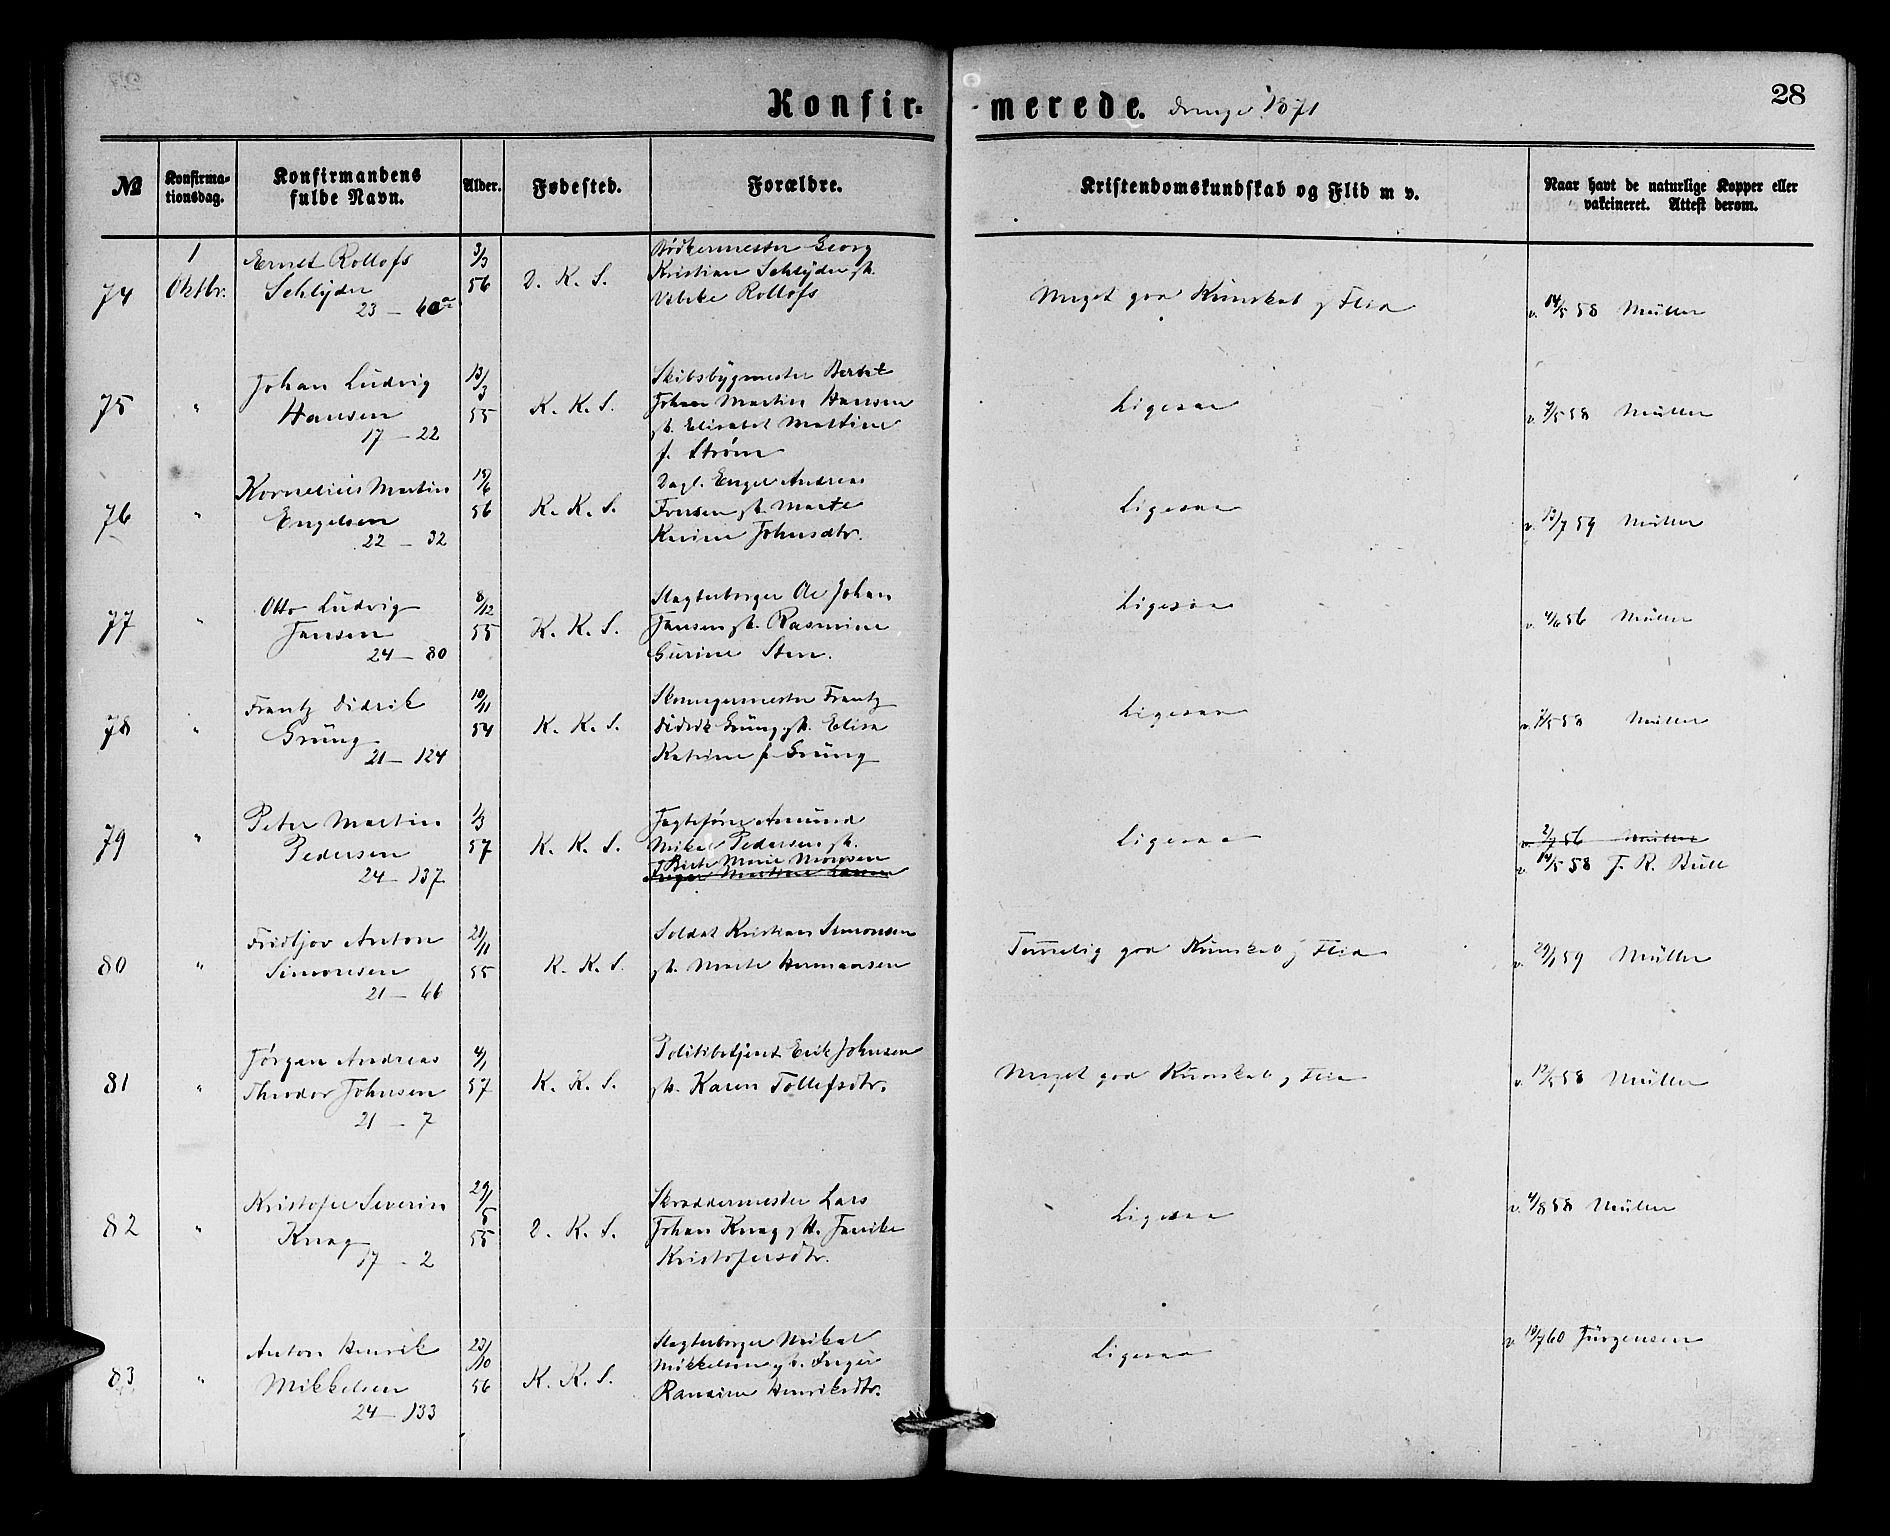 Konfirmerede. drenge 1871
28
№
Konfirma-
tionsdag.
Konfirmandens
fulde Navn.
Alder.
Fødested.
Forældre.
Kristendomskundskab og Flid m v.
Naar havt de naturlige Kopper eller
vakcineret. Attest derom.
74
1
Oktbr.
Ernst Rollofs
Schlyder
23 — 60
3/3
56
D. K. S.
Bödkermester Georg
Kristian Schlyder
Rollofs
Meget god Kunskab og Flid
v. 14/5 58 Müller
75
"
Johan Ludvig
Hansen
17 — 22
13/3
55
K. K. S.
Skibsbygmester Bertel
Johan Martin Hansen
Elisabet Martine
f. Strøm
Ligesaa
v. 58 Müller
76
"
Kornelius Martin
Engelsen
22 — 32
56
K. K. S.
Dagl. Engel Andreas
Iversen gb. Marte
Karine Johnsdtr.
Ligesaa
v. 13/7 59 Müller
77
"
Otto Ludvig
Jansen
24 — 80
8/12
55
K. K. S.
Slagterborger Ole Johan
Jansen gb. Rasmine
Gurine Sten.
Ligesaa
v. 4/6 56 Müller
78
"
Frantz Didrik
Grüng
21 — 124
10/11
54
K. K. S.
Skomagermester Frantz
Didrik Grüng gb. Elisa
Katrine f. Grüng
Ligesaa
58 Müller
79
"
Peter Martin
Pedersen
24 — 137
1/3
57
K. K. S.
Jagtefører Amund
Mikal Pedersen gb.
Berte Marie Monssen
Inger Martine Larsen
Ligesaa
v. 2/7 56 Müller
v. 14/5 58 J. R. Bull
80
"
Fridtjov Anton
Simonsen
21 — 66
21/11
55
K. K. S.
Soldat Kristian Simonsen
gb. Marte Hermansen
Temmelig god Kunskab og Flid
v. 29/1 59 Müller
81
"
Jørgen Andreas
Theodor Johnsen
21 — 7
4/1
57
K. K. S.
Politibetjent Erik Johnsen
gb. Karen Tollefsdtr.
Meget god Kunskab og Flid
v. 12/5 58 Müller
82
"
Kristofer Severin
Knag
17 — 2
29/5
55
D. K. S.
Skræddermester Lars
Johan Knag gb. Janike
Kristofersdtr.
Ligesaa
v. 4/8 58 Müller
83
"
Anton Henrik
Mikkelsen
24 — 133
23/10
56
K. K. S.
Slagterborger Mikal
Mikkelsen gb. Inger
Ransine Henriksdtr.
Ligesaa
v. 19/7 60 Jürgensen